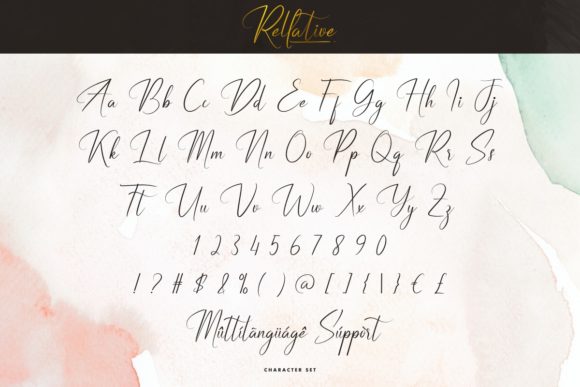 Rellative
Aa Bb Cc Dd Ee Ff Gg Hh Ii Jj
Kk Ll Mm Nn Oo Pp Qq Rr Ss
Tt Uu Vv Ww Xx Yy Zz
1 2 3 4 5 6 7 8 9 0
! ? # $ & % ( ) @ [ ] { \ } € £
Mûltílãngüágê Súppòrt
CHARACTER SET